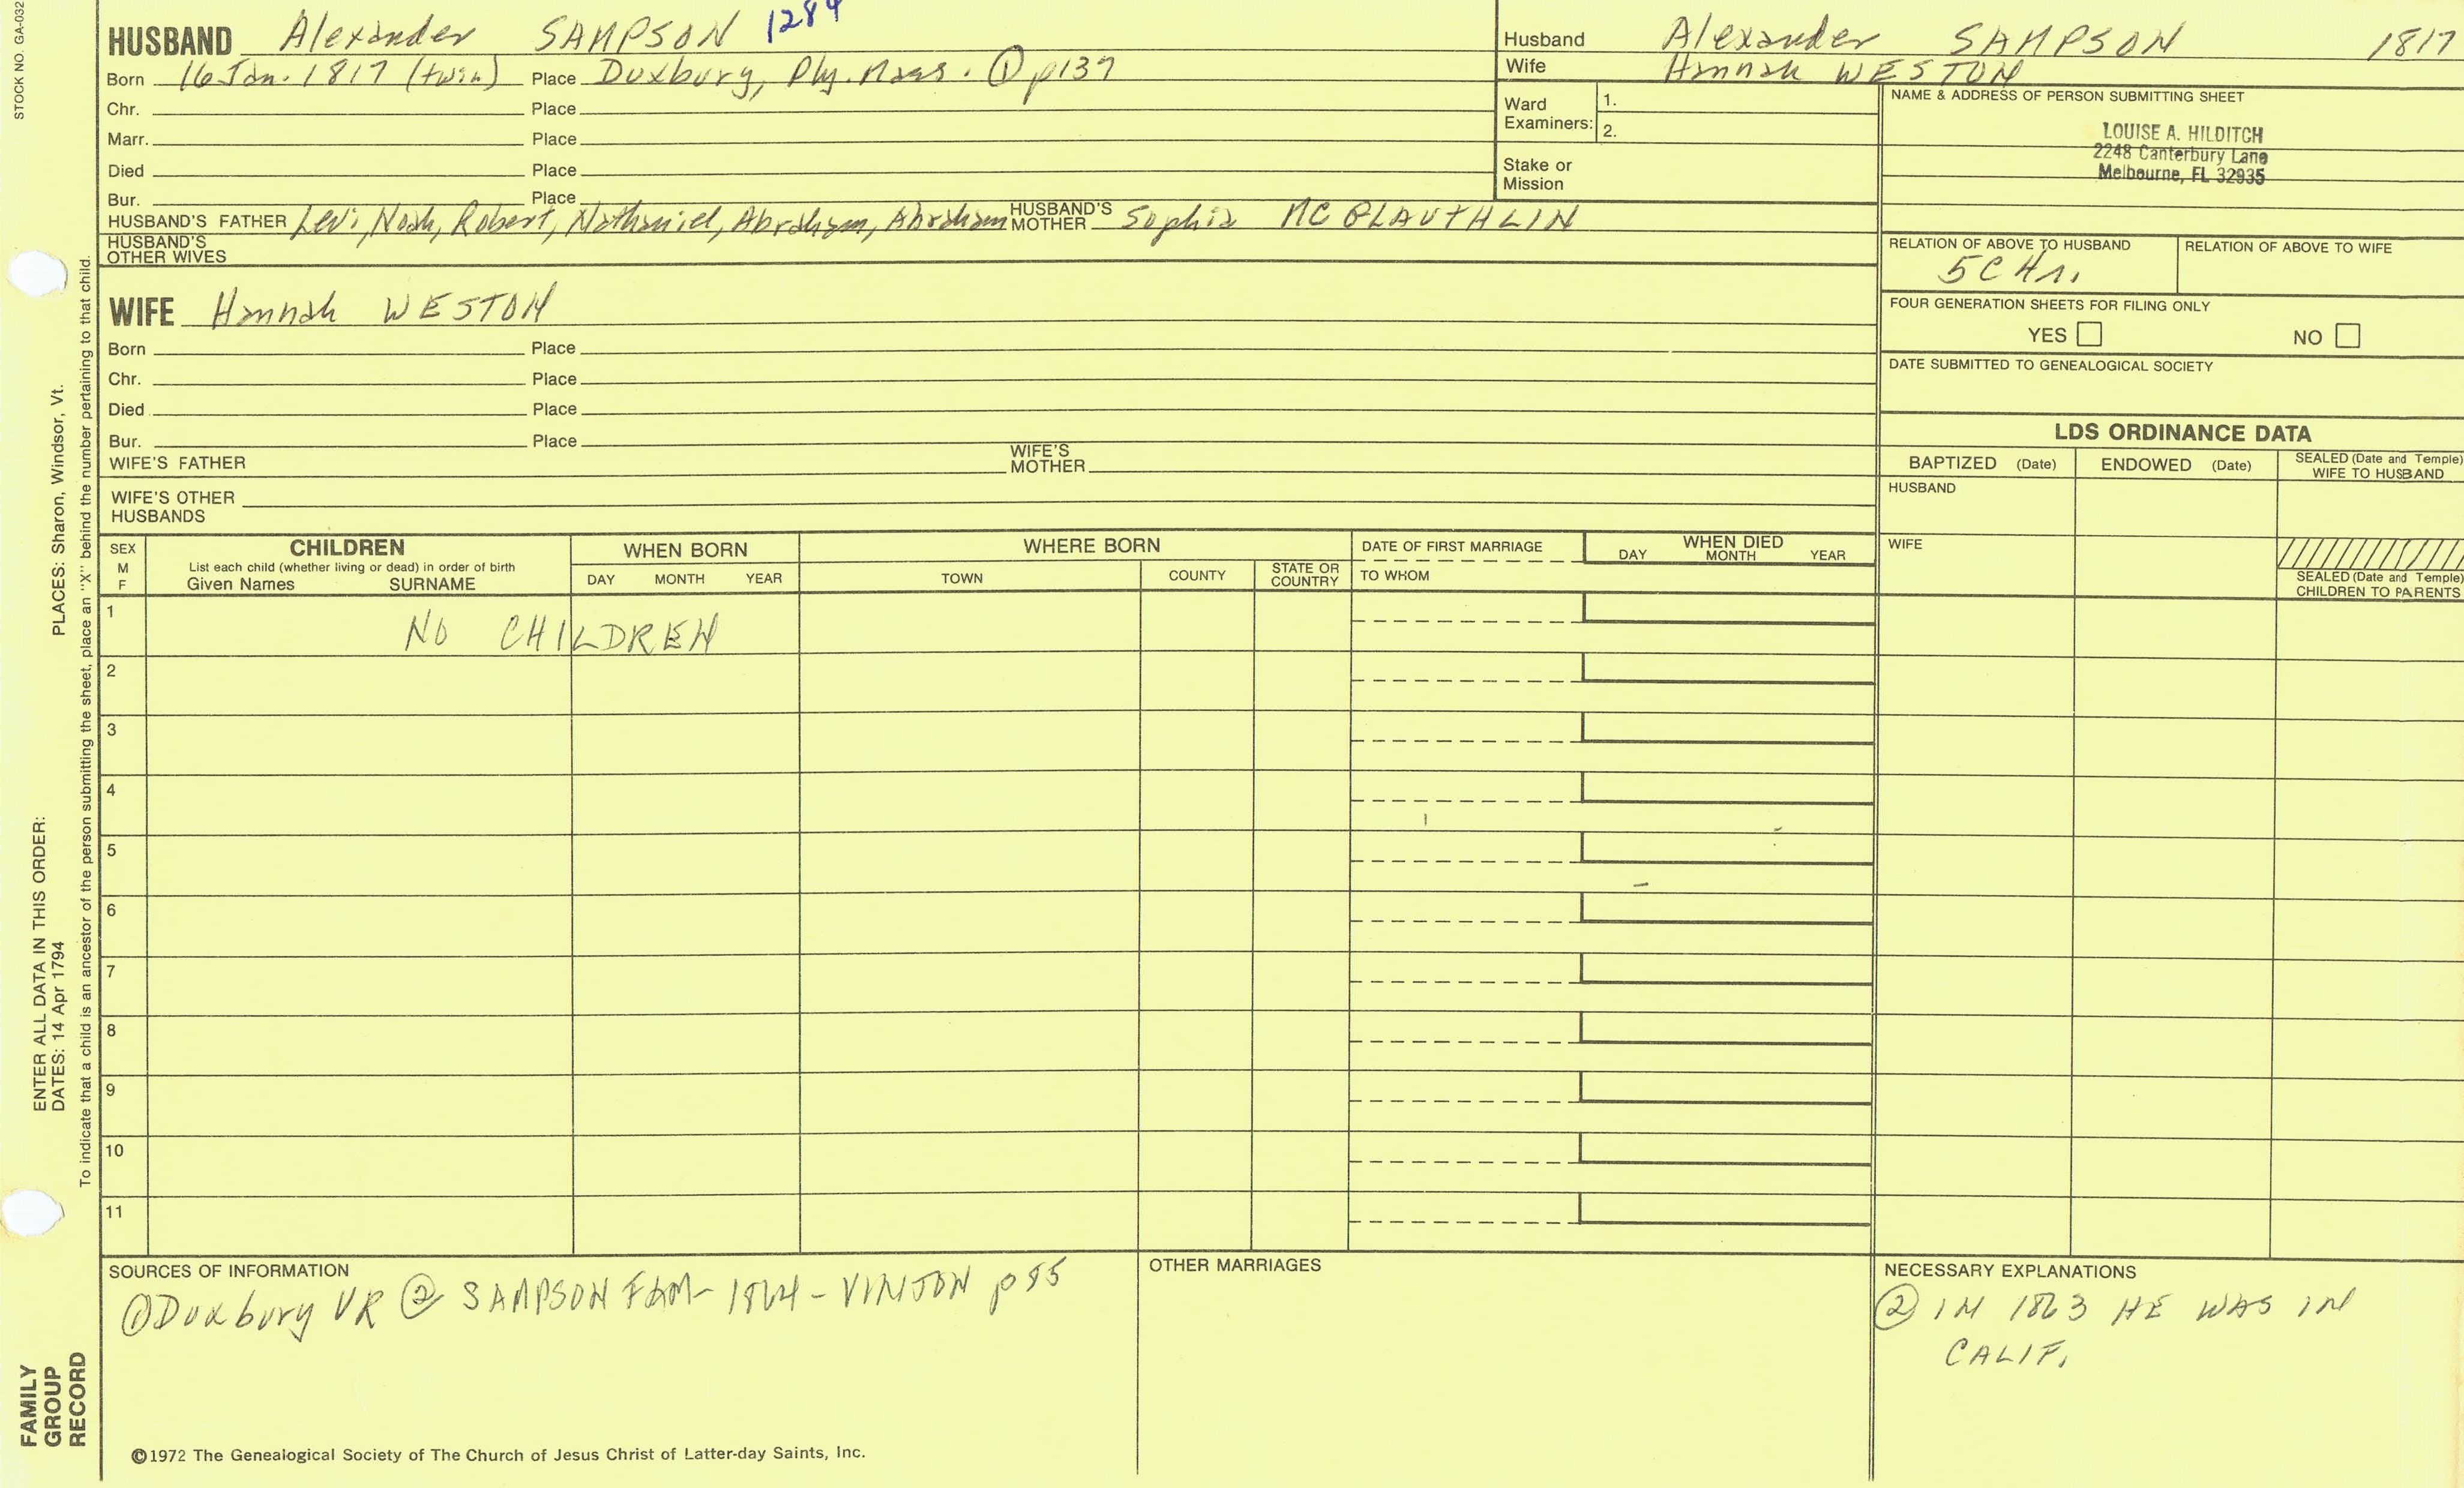 STOCK NO. GA-032
HUSBAND Alexander SAMPSON 1284
Born 16 Jan. 1817 (twin) Place Duxbury, Ply. Mass. ① p137
Chr. Place
Marr. Place
Died Place
Bur. Place
HUSBAND'S FATHER Levi, Noah, Robert, Nathaniel, Abraham, Abraham HUSBAND'S MOTHER Sophia MC GLAUTHLIN
HUSBAND'S OTHER WIVES
Husband Alexander SAMPSON 1817
Wife Hannah WESTON
Ward Examiners: 1.
2.
Stake or Mission
NAME & ADDRESS OF PERSON SUBMITTING SHEET
LOUISE A. HILDITCH
2248 Canterbury Lane
Melbourne, FL 32935
RELATION OF ABOVE TO HUSBAND RELATION OF ABOVE TO WIFE
5C4r.
FOUR GENERATION SHEETS FOR FILING ONLY
YES NO
DATE SUBMITTED TO GENEALOGICAL SOCIETY
WIFE Hannah WESTON
Born Place
Chr. Place
Died Place
Bur. Place
WIFE'S FATHER WIFE'S MOTHER
WIFE'S OTHER HUSBANDS
LDS ORDINANCE DATA
BAPTIZED (Date) ENDOWED (Date) SEALED (Date and Temple) WIFE TO HUSBAND
HUSBAND
WIFE
SEALED (Date and Temple) CHILDREN TO PARENTS
SEX M F
CHILDREN
List each child (whether living or dead) in order of birth
Given Names SURNAME
WHEN BORN
DAY MONTH YEAR
WHERE BORN
TOWN COUNTY STATE OR COUNTRY
DATE OF FIRST MARRIAGE
TO WHOM
WHEN DIED
DAY MONTH YEAR
1 NO CHILDREN
2
3
4
5
6
7
8
9
10
11
SOURCES OF INFORMATION
① Duxbury VR ② SAMPSON FAM- 1864 - VINTON p85
OTHER MARRIAGES
NECESSARY EXPLANATIONS
② IN 1863 HE WAS IN
CALIF.
©1972 The Genealogical Society of The Church of Jesus Christ of Latter-day Saints, Inc.
FAMILY
GROUP
RECORD
ENTER ALL DATA IN THIS ORDER:
DATES: 14 Apr 1794
PLACES: Sharon, Windsor, Vt.
To indicate that a child is an ancestor of the person submitting the sheet, place an "X" behind the number pertaining to that child.